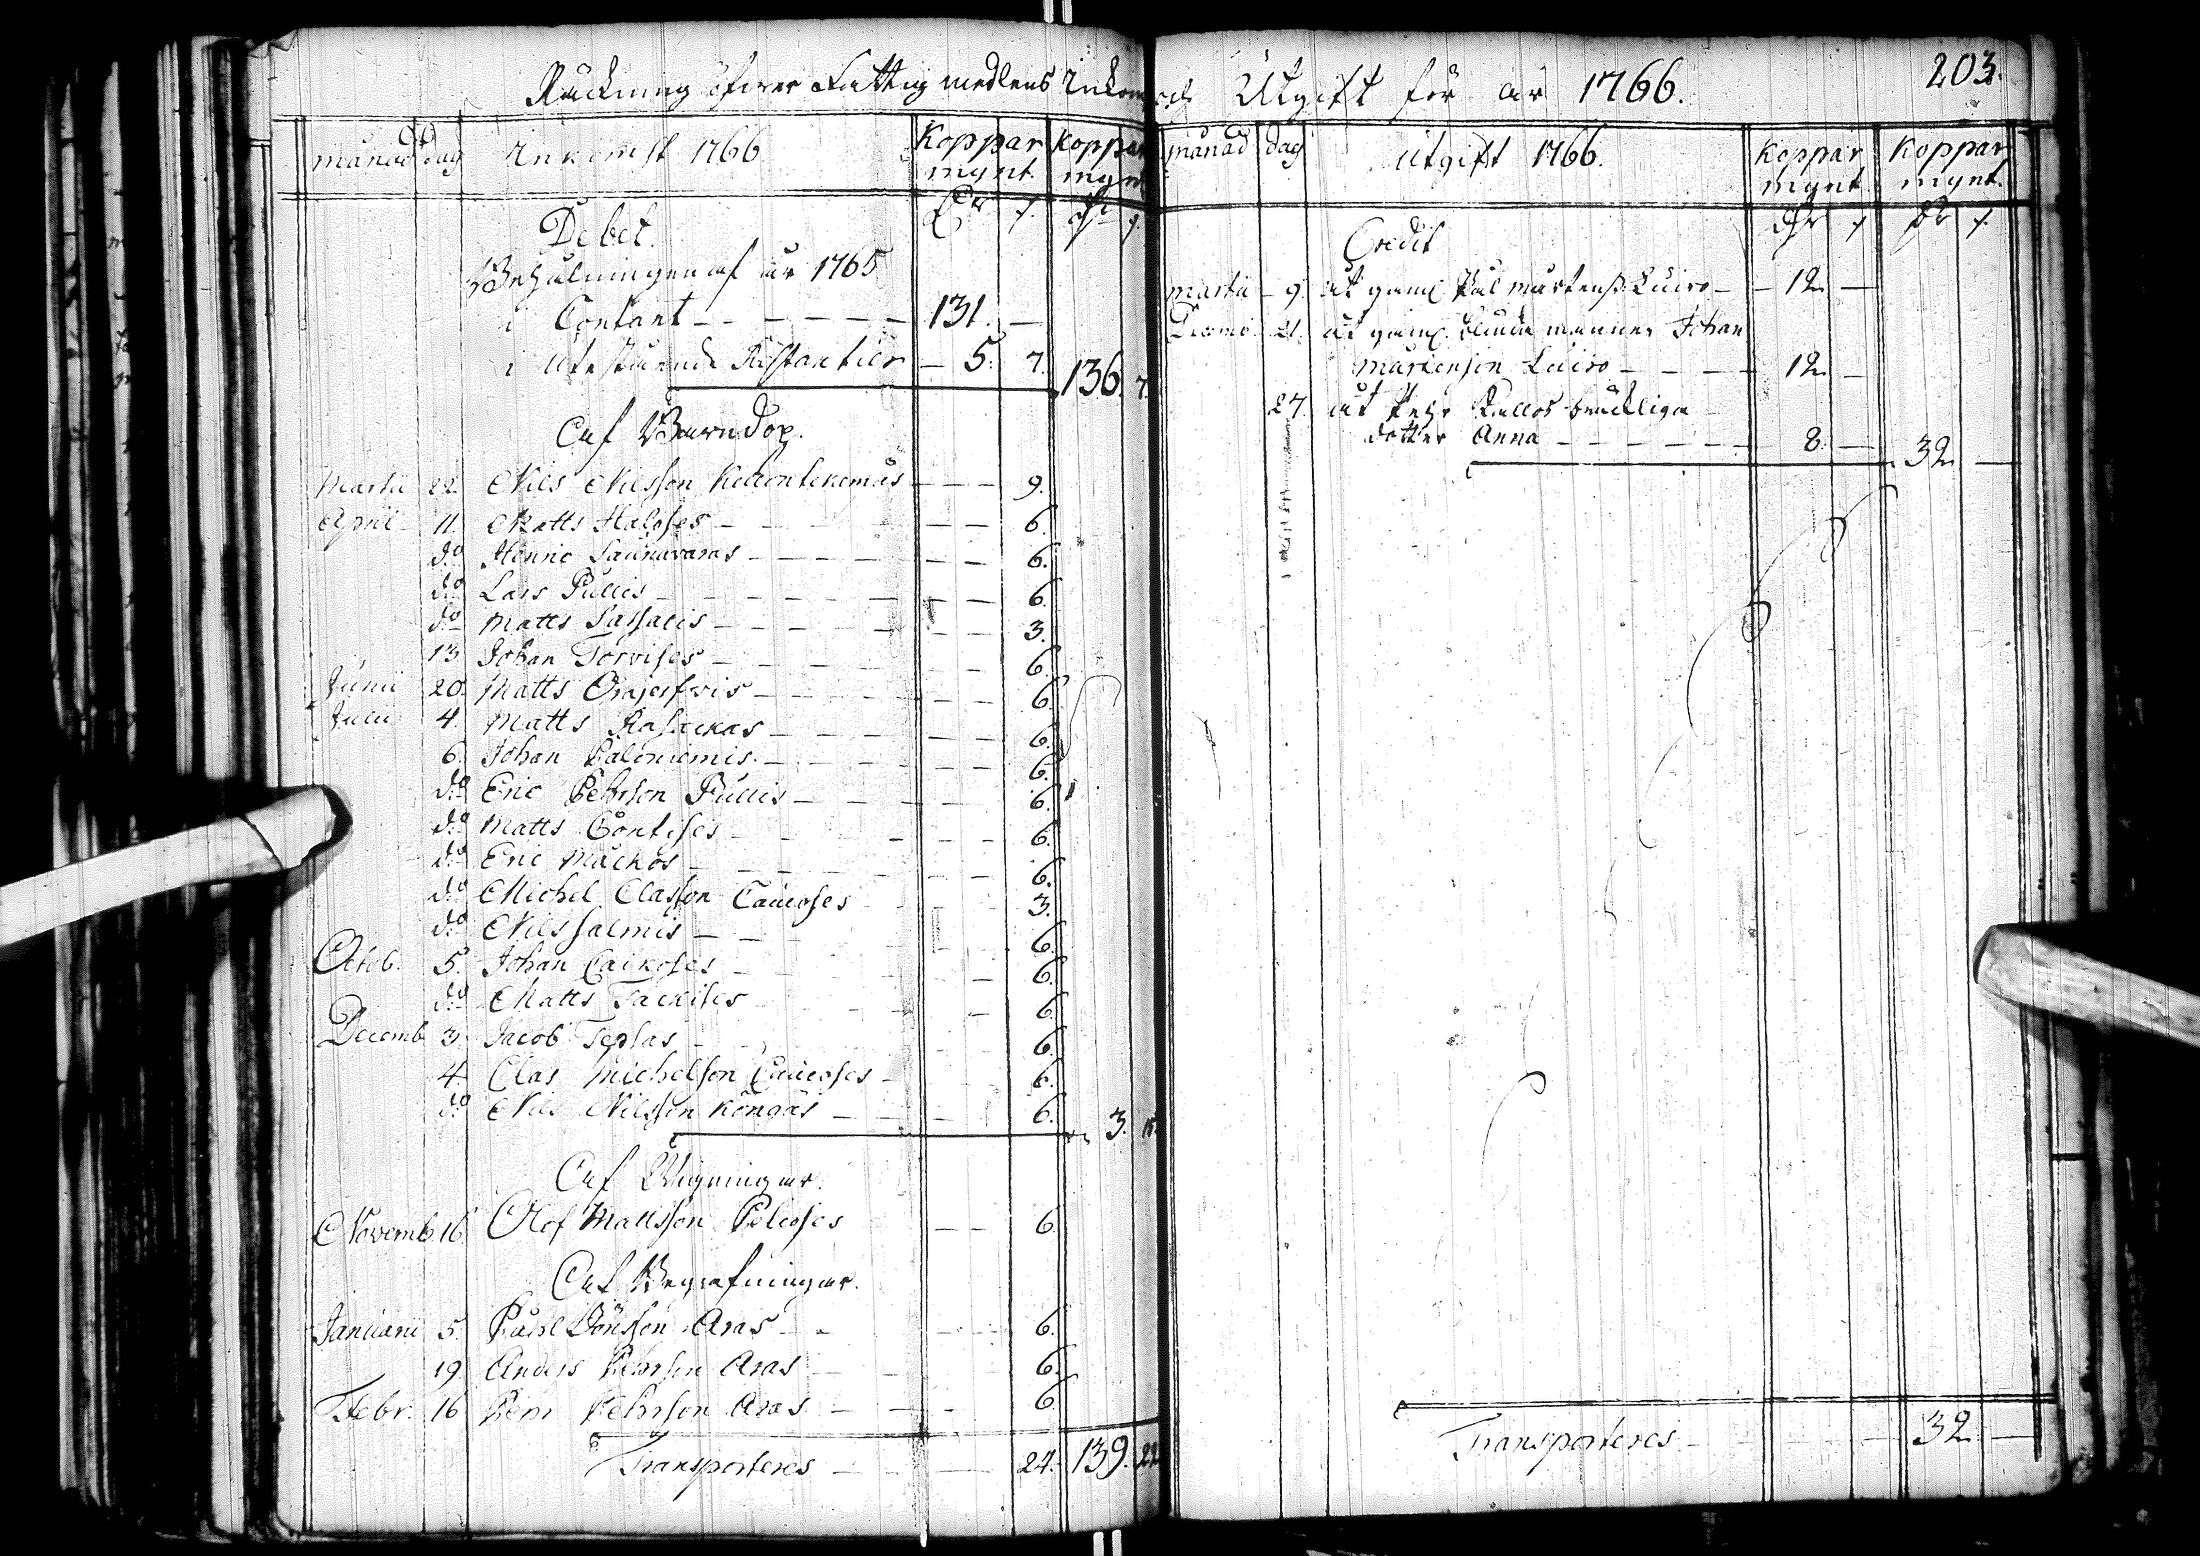 203.
Räckning öfwer Fattig medlens Inkom och Utgift för år 1766.
månad dag Inkomst 1766 Koppar mynt Koppar mynt
Dr ƒ. Dr ƒ.
Debet.
Behålningen af år 1765
i Contant - - - - - 131. -
i Utestående Restantier - 5. 7. 136. 7.
Af Barndop.
Martii 22. Nils Nilsson - - - 9.
April 11. Matts Haloses - - - 6.
do Henric Saunavaras - - - 6.
do Lars Pullis - - - 6.
do Matts Sassalis - - - 3.
13 Johan Torvises - - - 6.
Junii 20. Matts - - - 6.
Julii 4. Matts Rasackas - - - 6.
6. Johan Paloniemis - - - 6.
do Eric Pehrson Pullis - - - 6.
do Matts Contises - - - 6.
do Eric - - - 6.
do Michel Classon Caucoses - - - 3.
do Nils Salmis - - - 6.
Octob. 5. Johan Caicoses - - - 6.
do Matts - - - 6.
Decemb 3. Jacob Tepsas - - - 6.
4. Clas Michelson Caucoses - 6.
do Nils Nilsson Köngäs - - - 6. 3. 15.
Af Wigningar.
Novemb. 16. Olof Mattsson Pelcoses - - 6.
Af Begrafningar.
Januarii 5. Påhl Jönsson Aras - - 6.
19. Anders Pehrson Aras - - 6.
Febr. 16 Pehrson Aras - - - 6.
Transporteres - - - 24. 139. 22
månad dag Utgift 1766. Koppar mynt Koppar mynt.
Dr ƒ Dr ƒ.
Credit
Martii - 9. åt gaml Pål Mårtenss. Luiro - - 12 -
21. åt gaml. blinda mannen Johan
Mårtenson Luiro - - - - 12 -
27. åt Pehr Kallos bräckliga
dotter Anna - - - - - 8. - 32 -
Transporteres - - - 32 -